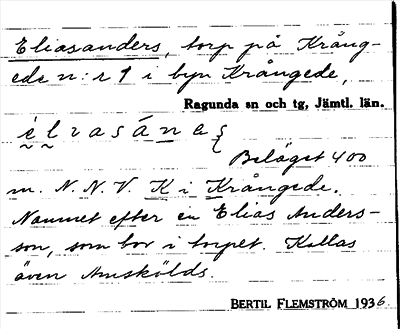 Eliasanders, torp på Krång-
ede n:r 1 i byn Krångede,
Ragunda sn och tg, Jämtl. län.
Beläget 400
m. N. N. V. K i Krångede.
Namnet efter en Elias Anders-
son, som bor i torpet. Kallas
även Amskölds.
BERTIL FLEMSTRÖM 1936.